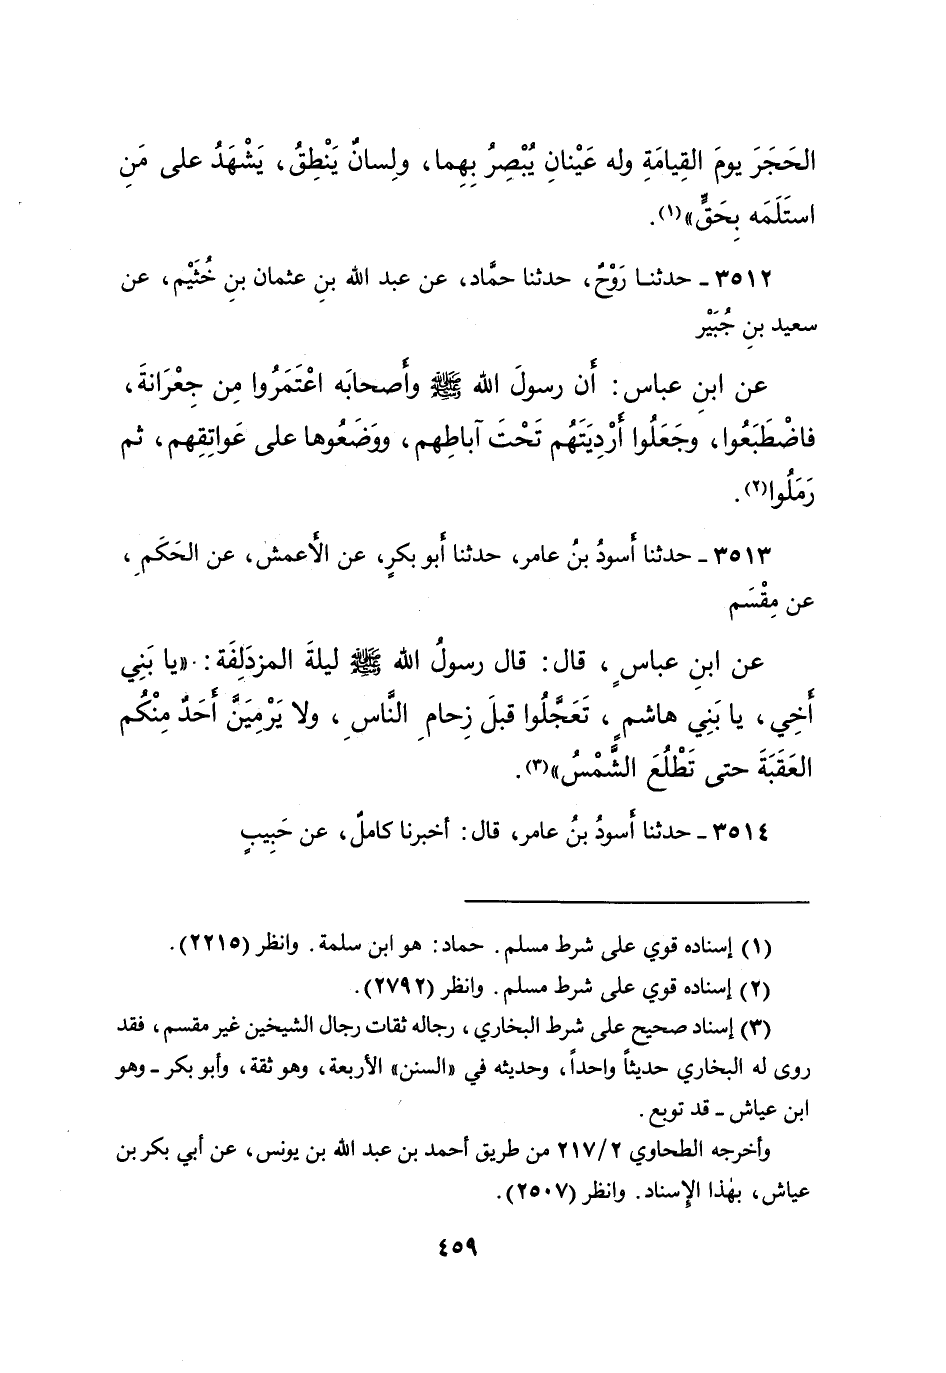 الحَجَرَ يومَ القِيامَةِ وله عَيْنانِ يُبْصِرُ بِهِما، ولِسانٌ يَنْطِقُ، يَشْهَدُ على مَنِ
استَلَمَه بِحَقٍّ»(١).
٣٥١٢ ـ حدثنـا رَوْحٌ، حدثنا حمَّاد، عن عبد الله بنِ عثمان بنِ خُثَيْم، عن
سعيد بنِ جُبَيْر
عن ابنِ عباس: أَن رسولَ الله ﷺ وأَصحابَه اعْتَمَرُوا مِن جِعْرَانةَ،
فاضْطَبَعُوا، وجَعَلُوا أَرْدِيَتَهُم تَحْتَ آباطِهم، ووَضَعُوها على عَواتِقِهم، ثم
رَمَلُوا(٢).
٣٥١٣ ـ حدثنا أَسودُ بنُ عامر، حدثنا أَبو بكرٍ، عن الأَعمش، عن الحَكَمِ،
عن مِقْسَم
عن ابنِ عباسٍ، قال: قال رسولُ الله ﷺ ليلةَ المزدَلِفَة: «يا بَنِي
أَخِي، يا بَنِي هاشمٍ، تَعَجَّلُوا قبلَ زِحامِ النَّاسِ، ولا يَرْمِيَنَّ أَحَدٌ مِنْكُم
العَقَبَةَ حتى تَطْلُعَ الشَّمْسُ»(٣).
٣٥١٤ ـ حدثنا أَسودُ بنُ عامر، قال: أخبرنا كاملٌ، عن حَبِيبٍ
(١) إسناده قوي على شرط مسلم. حماد: هو ابن سلمة. وانظر (٢٢١٥).
(٢) إسناده قوي على شرط مسلم. وانظر (٢٧٩٢).
(٣) إسناد صحيح على شرط البخاري، رجاله ثقات رجال الشيخين غير مقسم، فقد
روى له البخاري حديثاً واحداً، وحديثه في «السنن» الأربعة، وهو ثقة، وأبو بكر ـ وهو
ابن عياش ـ قد توبع.
وأخرجه الطحاوي ٢١٧/٢ من طريق أحمد بن عبد الله بن يونس، عن أبي بكر بن
عياش، بهٰذا الإِسناد. وانظر (٢٥٠٧).
٤٥٩